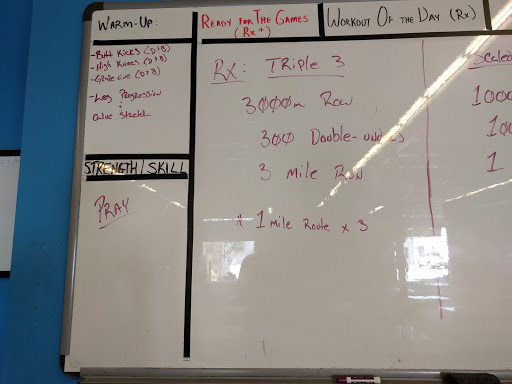 WARM-UP:
- Butt Kicks (D+B)
- High Knees (D+B)
- Grapevine (D+B)
- Leg Progression
:
Calve Stretch
STRENGTH/SKILL
PRAY
READY FOR THE GAMES
(RX+)
WORKOUT OF THE DAY (RX)
RX: TRIPLE 3
3000m Row
300 Double-unders
3 mile RUN
* 1 mile Route x 3
Scaled
1000
100
1